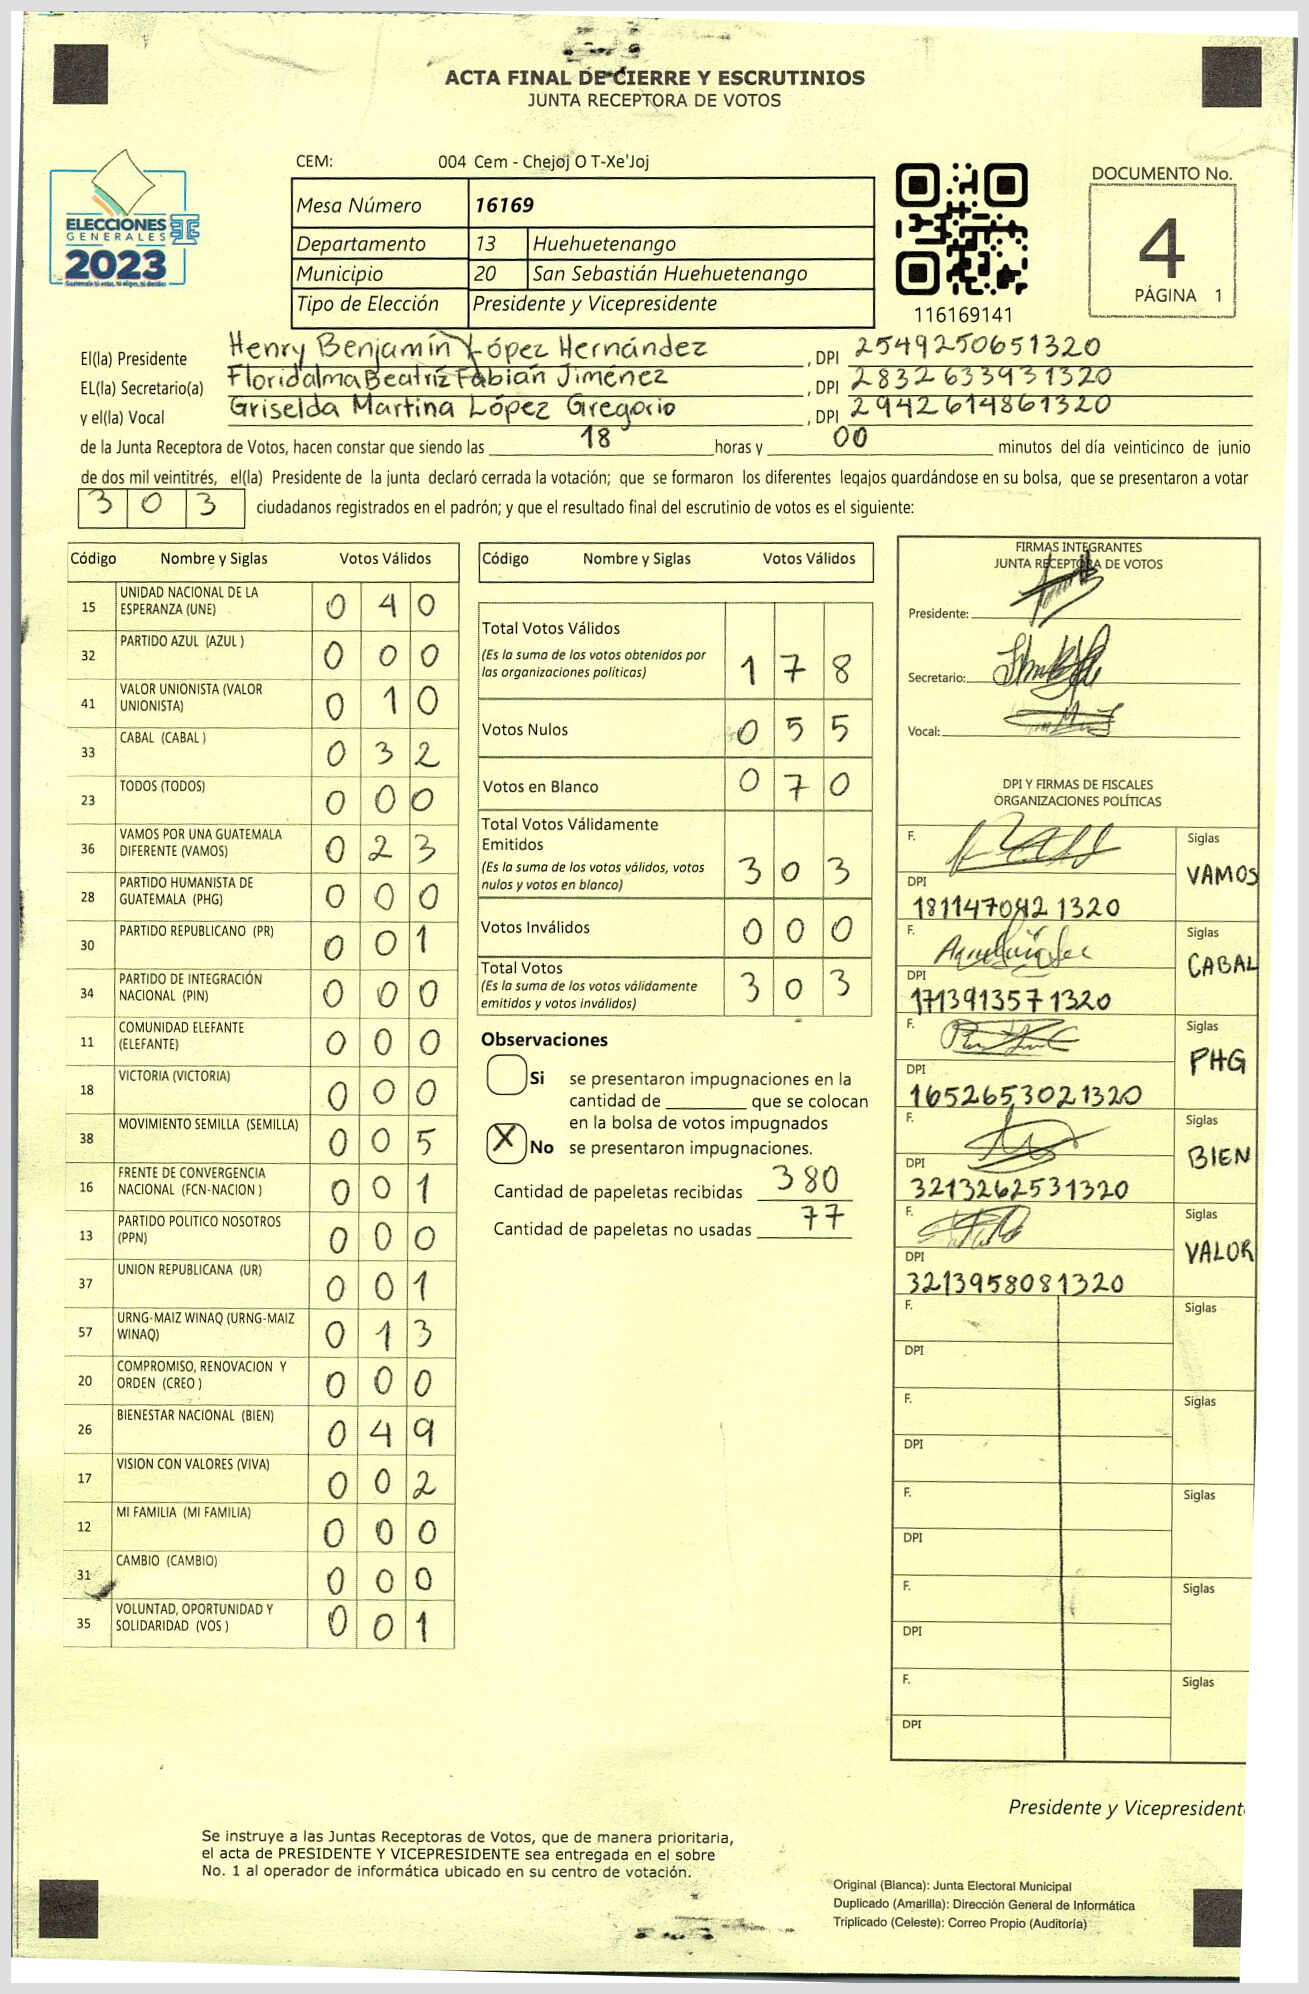 ACTA FINAL DE CIERRE Y ESCRUTINIOS
JUNTA RECEPTORA DE VOTOS
ELECCIONES
GENERALES
2023
CEM: 004 Cem - Chejoj O T-Xe'Joj
Mesa Número 16169
Departamento 13 Huehuetenango
Municipio 20 San Sebastián Huehuetenango
Tipo de Elección Presidente y Vicepresidente
116169141
DOCUMENTO No.
4
PÁGINA 1
El(la) Presidente Henry Benjamín López Hernández, DPI 2549250651320
EL(la) Secretario(a) Floridalma Beatríz Fabián Jiménez, DPI 2832633931320
y el(la) Vocal Griselda Martina López Gregorio, DPI 2942614861320
de la Junta Receptora de Votos, hacen constar que siendo las 18 horas y 00 minutos del día veinticinco de junio
de dos mil veintitrés, el(la) Presidente de la junta declaró cerrada la votación; que se formaron los diferentes legajos guardándose en su bolsa, que se presentaron a votar
303 ciudadanos registrados en el padrón; y que el resultado final del escrutinio de votos es el siguiente:
Código Nombre y Siglas Votos Válidos
15 UNIDAD NACIONAL DE LA ESPERANZA (UNE) 0 4 0
32 PARTIDO AZUL (AZUL ) 0 0 0
41 VALOR UNIONISTA (VALOR UNIONISTA) 0 1 0
33 CABAL (CABAL ) 0 3 2
23 TODOS (TODOS) 0 0 0
36 VAMOS POR UNA GUATEMALA DIFERENTE (VAMOS) 0 2 3
28 PARTIDO HUMANISTA DE GUATEMALA (PHG) 0 0 0
30 PARTIDO REPUBLICANO (PR) 0 0 1
34 PARTIDO DE INTEGRACIÓN NACIONAL (PIN) 0 0 0
11 COMUNIDAD ELEFANTE (ELEFANTE) 0 0 0
18 VICTORIA (VICTORIA) 0 0 0
38 MOVIMIENTO SEMILLA (SEMILLA) 0 0 5
16 FRENTE DE CONVERGENCIA NACIONAL (FCN-NACION ) 0 0 1
13 PARTIDO POLITICO NOSOTROS (PPN) 0 0 0
37 UNION REPUBLICANA (UR) 0 0 1
57 URNG-MAIZ WINAQ (URNG-MAIZ WINAQ) 0 1 3
20 COMPROMISO, RENOVACION Y ORDEN (CREO ) 0 0 0
26 BIENESTAR NACIONAL (BIEN) 0 4 9
17 VISION CON VALORES (VIVA) 0 0 2
12 MI FAMILIA (MI FAMILIA) 0 0 0
31 CAMBIO (CAMBIO) 0 0 0
35 VOLUNTAD, OPORTUNIDAD Y SOLIDARIDAD (VOS ) 0 0 1
Código Nombre y Siglas Votos Válidos
Total Votos Válidos
(Es la suma de los votos obtenidos por
las organizaciones políticas) 1 7 8
Votos Nulos 0 5 5
Votos en Blanco 0 7 0
Total Votos Válidamente
Emitidos
(Es la suma de los votos válidos, votos
nulos y votos en blanco) 3 0 3
Votos Inválidos 0 0 0
Total Votos
(Es la suma de los votos válidamente
emitidos y votos inválidos) 3 0 3
Observaciones
Si se presentaron impugnaciones en la
cantidad de ________ que se colocan
en la bolsa de votos impugnados
X No se presentaron impugnaciones.
Cantidad de papeletas recibidas 380
Cantidad de papeletas no usadas 77
FIRMAS INTEGRANTES
JUNTA RECEPTORA DE VOTOS
Presidente:
Secretario:
Vocal:
DPI Y FIRMAS DE FISCALES
ORGANIZACIONES POLÍTICAS
F. Siglas
VAMOS
DPI
1811470421320
F. Siglas
CABAL
DPI
1713913571320
F. Siglas
PHG
DPI
1652653021320
F. Siglas
BIEN
DPI
3213262531320
F. Siglas
VALOR
DPI
3213958081320
F. Siglas
DPI
F. Siglas
DPI
F. Siglas
DPI
F. Siglas
DPI
F. Siglas
DPI
Presidente y Vicepresident
Se instruye a las Juntas Receptoras de Votos, que de manera prioritaria,
el acta de PRESIDENTE Y VICEPRESIDENTE sea entregada en el sobre
No. 1 al operador de informática ubicado en su centro de votación.
Original (Blanca): Junta Electoral Municipal
Duplicado (Amarilla): Dirección General de Informática
Triplicado (Celeste): Correo Propio (Auditoría)